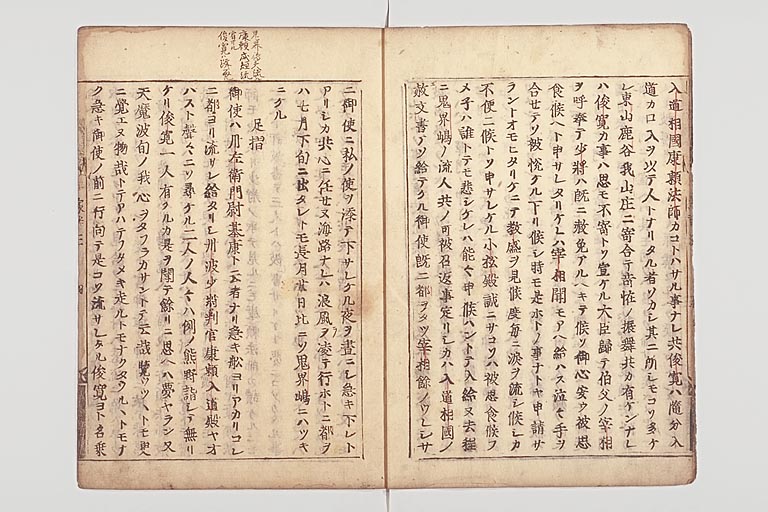 入道相國康頼法師カコトハサル事ナレ共俊寛ハ隨分入
道カ口入ヲ以テ人トナリタル者ソカシ其ニ所シモコソ多ケ
レ東山鹿谷我山庄ニ寄合テ奇怪ノ振舞共カ有ケンナレ
ハ俊寛カ事ハ思モ不寄トソ宣ケル大臣歸テ伯父ノ宰相
ヲ呼奉テ少將ハ既ニ赦免アルヘキテ候ソ御心安ウ被思
食候ヘト申サレタリケレハ宰相聞モアヘ給ハス泣々手ヲ
合セテソ被悦ケル下リ候シ時モ是ホトノ事ナトヤ申請サ
ラントオモヒタリケニテ教盛ヲ見候度毎ニ涙ヲ流シ候シカ
不便ニ候トソ申サレケル小松殿誠ニサコソハ被思食候ラ
メ子ハ誰トテモ悲シケレハ能々申候ハントテ入給ヌ去程
ニ鬼界嶋ノ流人共ノ可被召返事定リシカハ入道相國ノ
赦文書テソ給テケル御使既ニ都ヲタツ宰相餘ノウレシサ
ニ御使ニ私ノ使ヲ添テ下サレケル夜ヲ晝ニシ急キ下レト
アリシカ共心ニ任セヌ海路ナレハ浪風ヲ凌テ行ホトニ都ヲ
ハ七月下旬ニ出タレトモ長月廿日比ニソ鬼界嶋ニハツキ
ニケル
足摺
御使ハ丹左衛門尉基康ト云者ナリ急キ舩ヨリアカリコレ
ニ都ヨリ流サレ給タリシ丹波少將判官康頼入道殿ヤオ
ハスト聲々ニソ尋ケル二人ノ人々ハ例ノ熊野詣シテ無リ
ケリ俊寛一人有ケルカ是ヲ聞テ餘リニ思ヘハ夢ヤラン又
天魔波旬ノ我心ヲタフラカサントテ云哉覽ウツヽトモ更
ニ覺エヌ物哉トテアハテフタメキ走ルトモナクタウルヽトモナ
ク急キ御使ノ前ニ行向テ是コソ流サレタル俊寛ヨト名乗